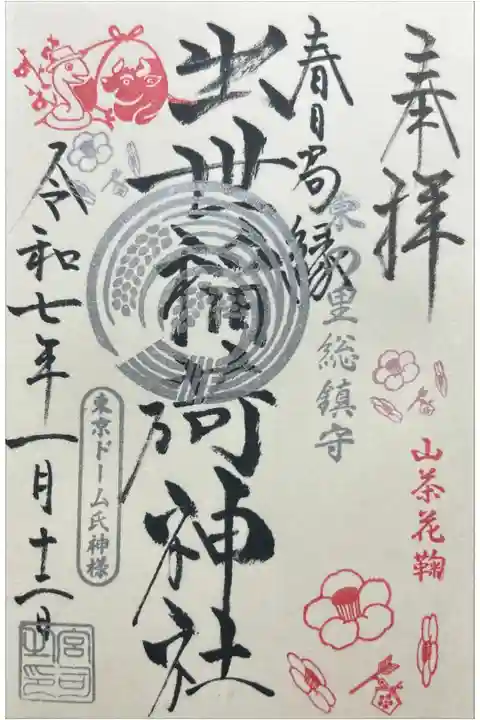 奉拝
春日局縁
東の里総鎮守
山茶花鞠
出世稲荷神社
東京ドーム氏神様
令和七年一月十二日
宮司之印